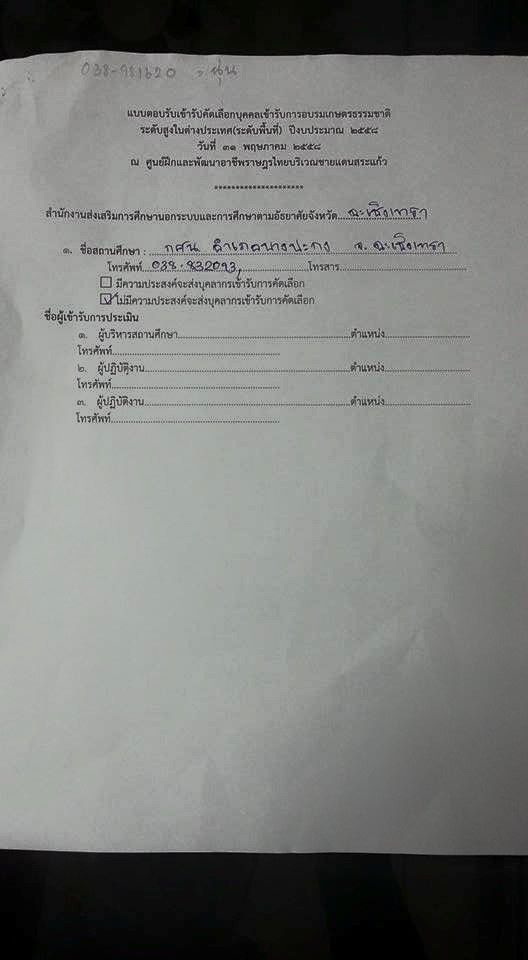 038-981620 นุ่น
แบบตอบรับเข้ารับคัดเลือกบุคคลเข้ารับการอบรมเกษตรธรรมชาติ
ระดับสูงในต่างประเทศ(ระดับพื้นที่) ปีงบประมาณ ๒๕๕๘
วันที่ ๓๑ พฤษภาคม ๒๕๕๘
ณ ศูนย์ฝึกและพัฒนาอาชีพราษฎรไทยบริเวณชายแดนสระแก้ว
*********************
สำนักงานส่งเสริมการศึกษานอกระบบและการศึกษาตามอัธยาศัยจังหวัด...ฉะเชิงเทรา
๑. ชื่อสถานศึกษา : กศน อำเภอบางปะกง จ.ฉะเชิงเทรา
โทรศัพท์...038-832093,...โทรสาร...
มีความประสงค์จะส่งบุคลากรเข้ารับการคัดเลือก
ไม่มีความประสงค์จะส่งบุคลากรเข้ารับการคัดเลือก
ชื่อผู้เข้ารับการประเมิน
๑. ผู้บริหารสถานศึกษา...ตำแหน่ง...
โทรศัพท์...
๒. ผู้ปฏิบัติงาน...ตำแหน่ง...
โทรศัพท์...
๓. ผู้ปฏิบัติงาน...ตำแหน่ง...
โทรศัพท์...